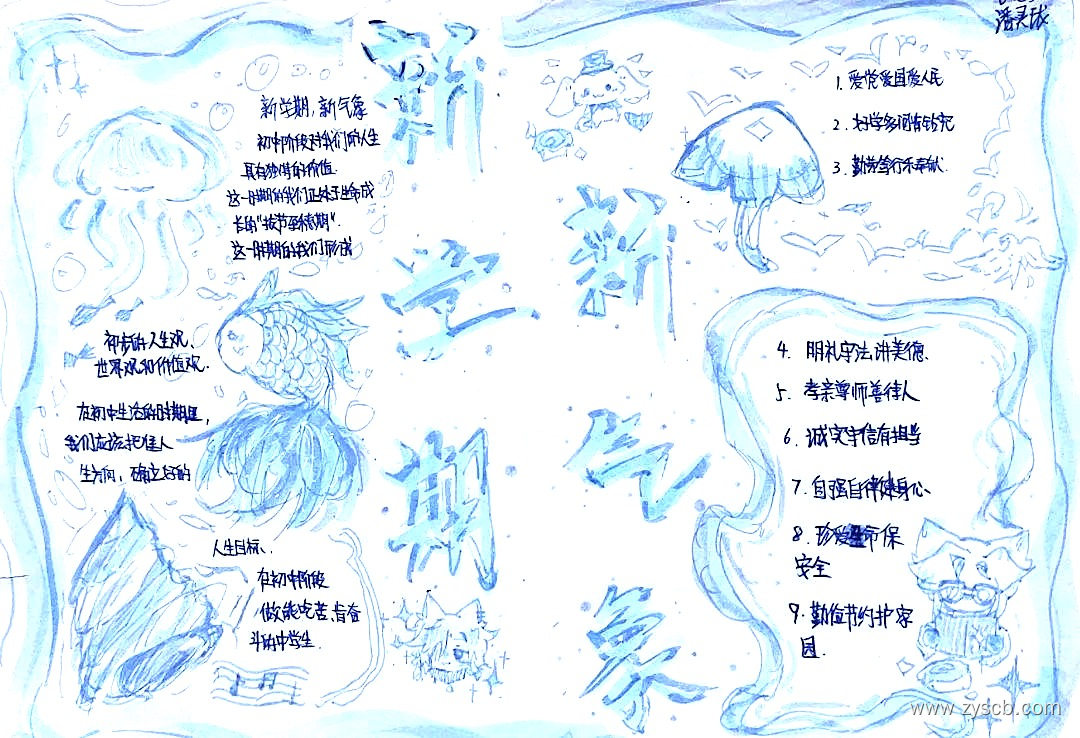 潘灵珑
新学期
新气象
新学期,新气象
初中阶段对我们的人生
具有独特的价值.
这一时期的我们正处于生命成
长的"拔节孕穗期".
这一时期的我们形成
初步的人生观、
世界观和价值观.
在初中生活的时期里,
我们应该把准人
生方向,确立好的
人生目标、
在初中阶段
做能吃苦、肯奋
斗的中学生.
1. 爱党爱国爱人民
2. 好学多问肯钻究
3. 勤劳笃行乐奉献.
4. 明礼守法讲美德、
5. 孝亲尊师善待人
6. 诚实守信有担当
7. 自强自律健身心、
8. 珍爱生命保
安全
9. 勤俭节约护家
园.
www.zyscb.com